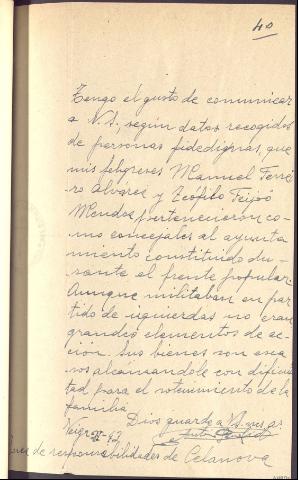 40
Tengo el gusto de comunicar
a V.S., según datos recogidos
de personas fidedignas, que
mis feligreses Manuel Ferrei
ro Alvarez y Teófilo Feijóo
Mendez pertenecieron co-
mo concejales al ayunta
miento constituido du-
rante el frente popular.
Aunque militaban en par
tido de izquierdas no eran
grandes elementos de ac-
ción. Sus bienes son esca
sos alcanzandole con dificul
tad para el sostenimiento de la
familia.
Dios guarde a V.S. ms. as.
42
de responsabilidades de Celanova